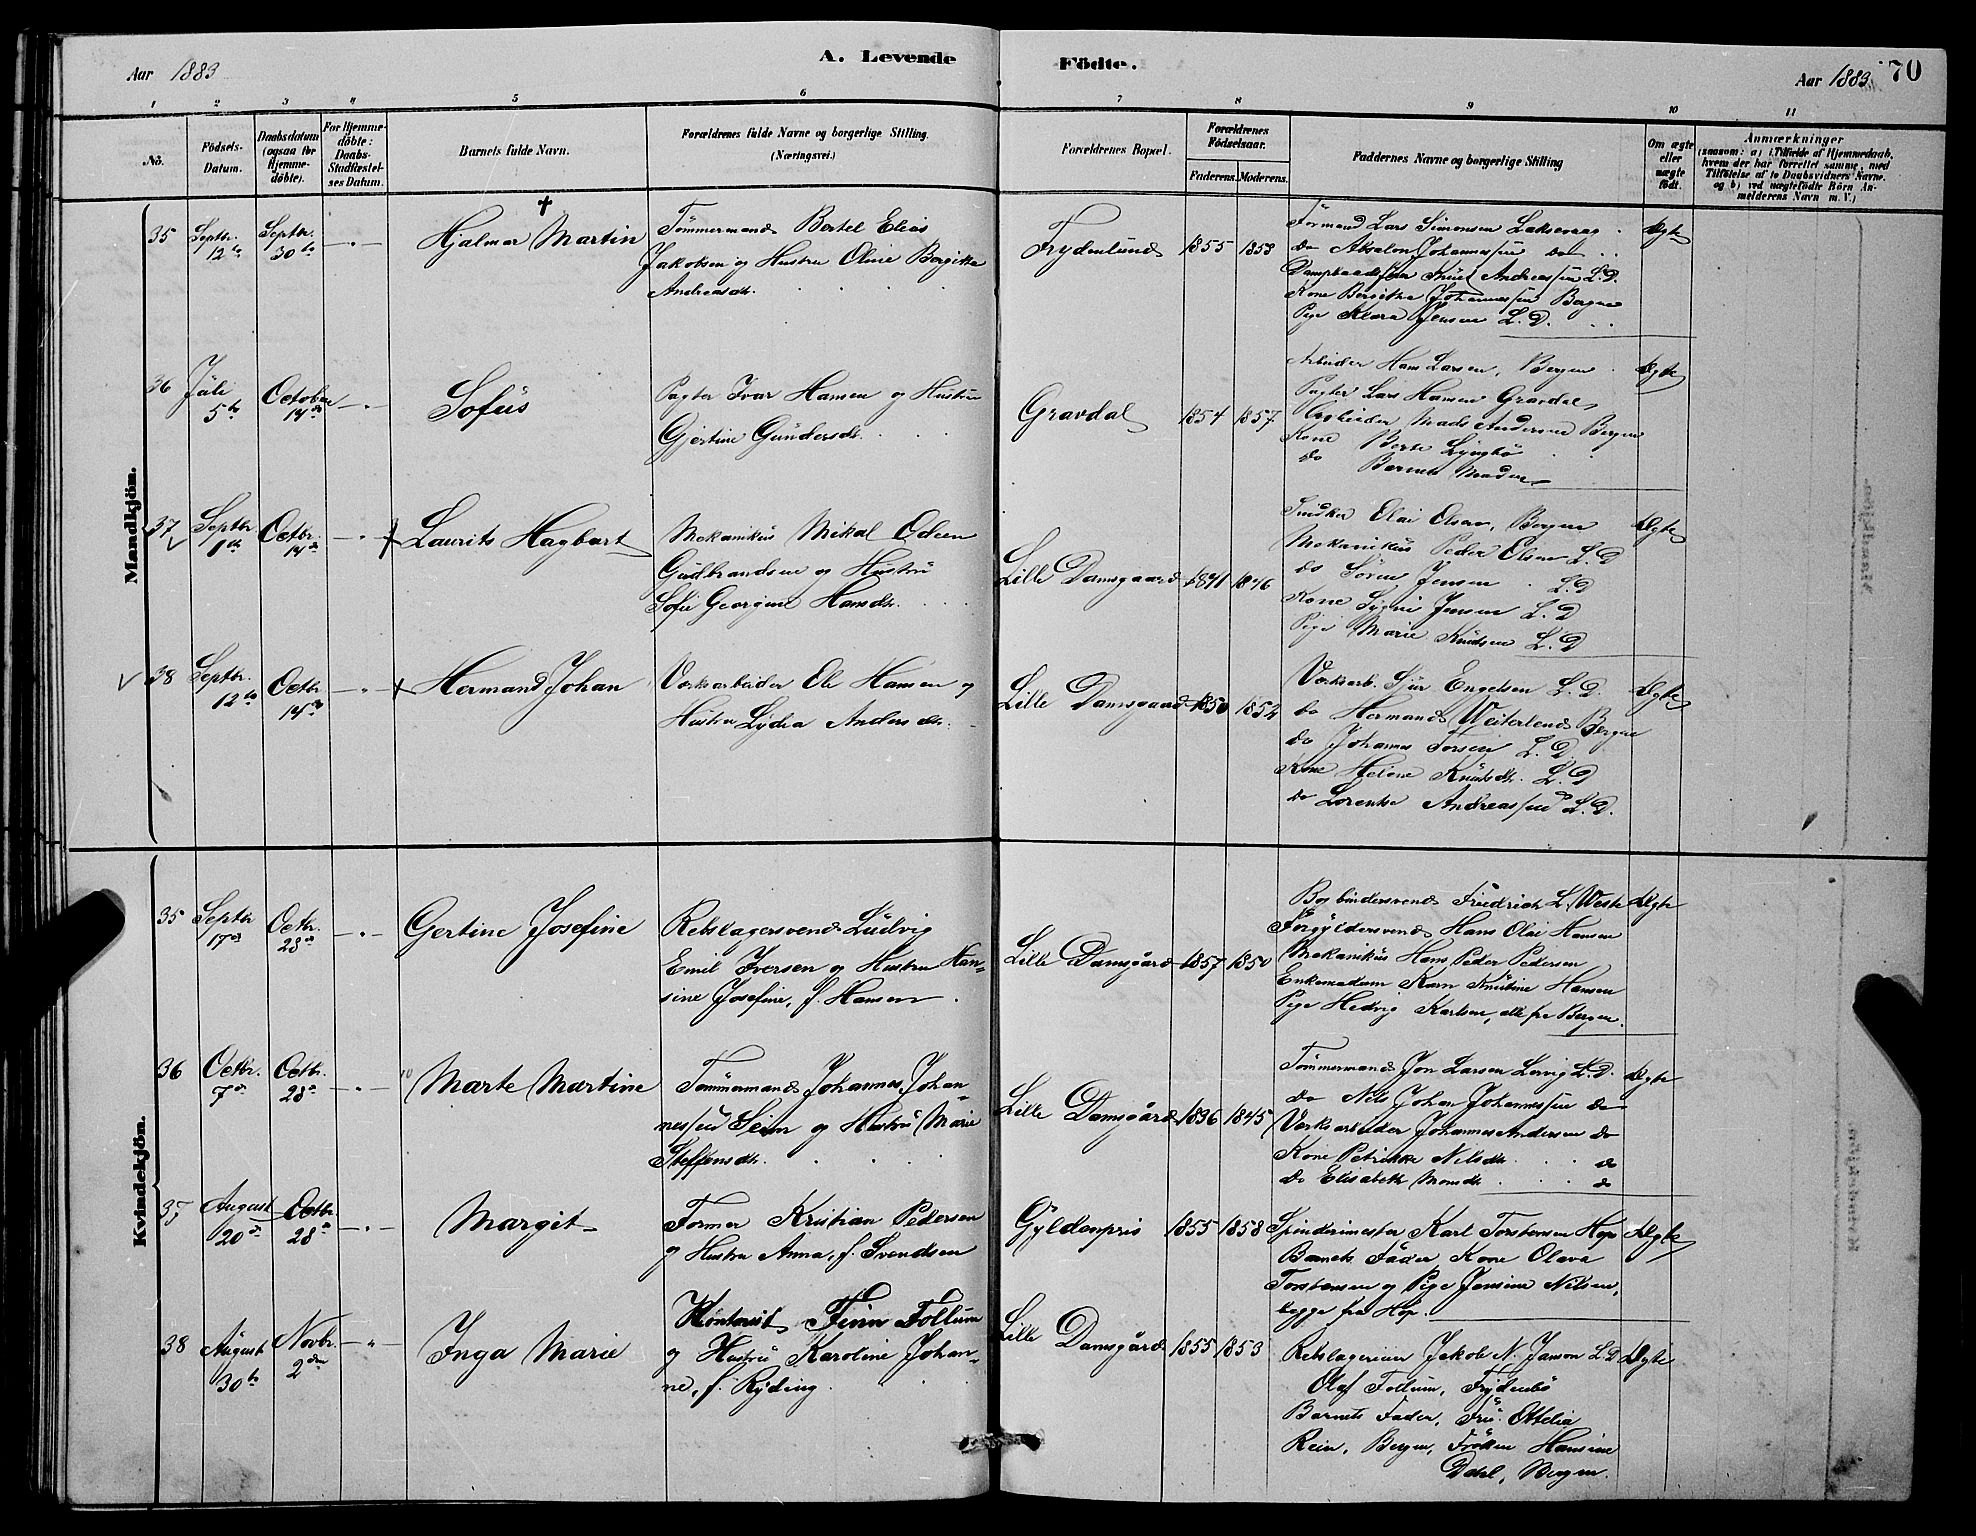 Aar 1883
A. Levende
Födte.
Aar 1883
70
1 2 3 4 5 6 7 8 9 10 11
No.
Födsels-
Datum.
Daabsdatum
(ogsaa for
Hjemme-
döbte).
For Hjemme-
döbte:
Daabs-
Stadfæstel-
ses Datum.
Barnets fulde Navn.
Forældrenes fulde Navne og borgerlige Stilling.
(Næringsvei.)
Forældrenes Bopæl.
Forældrenes
Födselsaar.
Faderens. Moderens.
Faddernes Navne og borgerlige Stilling
Om ægte
eller
uægte
födt.
Anmærkninger
(saasom: a) i Tilfælde af Hjemmedaab,
hvem der har forrettet samme, med
Tilföielse af to Daabsvidners Navne,
og b) ved uægtefödte Börn An-
melderens Navn m. V.)
Mandkjön.
35
Septbr.
12te
Septbr.
30te
Hjalmar Martin
Tömmermand Bertel Elias
Jakobsen og Hustru Oline Bergitte
Andreasdtr.
Frydenlund
1855
1858
Formand Lars Simonsen Laksevaag
do Absalon Johannessen do
Knut Andreassen L.D.
Kone Bergitha Johannessen Bergen
Pige Klara Jensen L.D.
Ægte
36
Juli
5te
October
14de
Sofus
Pagter Ivar Hansen og Hustru
Gjertine Gundersdtr.
Gravdal
1854
1857
Arbeider Hans Larsen, Bergen
Pagter Lars Hansen Gravdal
Arbeider Mads Andersen Bergen
Kone Berte Lyngbö
do Barnets Moder
Ægte
37
Septbr.
1ste
Octbr.
14de
Laurits Hagbart
Mekanikus Mikal Odeen
Gudbrandsen og Hustru
Sofie Georgine Hansdtr.
Lille Damsgaard
1841
1846
Snedker Elai Olsen, Bergen
Mekanikus Peder Olsen L.D
do Sören Jensen L.D
Kone Signe Jensen L.D
Pige Marie Knudsen L.D
Ægte
38
Septbr.
12te
Octbr.
14de
Hermand Johan
Værksarbeider Ole Hansen og
Hustru Lydia Andersdtr.
Lille Damsgaard
1850
1852
Værksarb. Sjur Engelsen L.D.
do Hermand Weiterlend Bergen
do Johannes Torsen L.D
Kone Helene Knutsdtr. L.D
do Lorentse Andreassen L.D.
Ægte
Kvindekjön.
35
Septbr
17de
Octbr.
28de
Gertine Josefine
Rebslagersvend Ludvig
Emil Iversen og Hustru Han-
sine Josefine, f. Hansen
Lille Damsgård
1857
1850
Bogbindersvend Friedrich L. Weste
Forgyldersvend Hans Olai Hansen
Mekanikus Hans Peder Pedersen
Enkemadam Karn Kristine Hansen
Pige Hedvig Karlsen, alle fra Bergen.
Ægte
36
Octbr.
7de
Octbr.
28de
Marte Martine
Tömmermand Johannes Johan-
nessen Seim og Hustru Marie
Steffensdtr.
Lille Damsgård
1836
1845
Tömmermand Jon Larsen Lervig L.D.
do Nils Johan Johannessen do
Værksarbeider Johannes Andersen do
Kone Petrikke Nilsdtr. do
do Elisabeth Monsdtr. do
Ægte
37
August
20de
Octbr.
28de
Margit
Former Kristian Pedersen
og Hustru Anna, f. Svendsen
Gyldenpris
1855
1858
Spinderimester Karl Torstensen Hop
Barnets Fader Kone Olava
Torstensen og Pige Jensine Nilsen,
begge fra Hop.
Ægte
38
August
30te
Novbr.
2den
Inga Marie
Kontorist Finn Follum
og Hustru Karoline Johan-
ne, f. Ryding.
Lille Damsgård
1855
1853
Rebslagerier Jakob N. Janson L.D
Olaf Follum, Frydenbö
Barnets Fader, Fru Ottelia
Rein, Bergen, Fröken Hansine
Dahl, Bergen.
Ægte